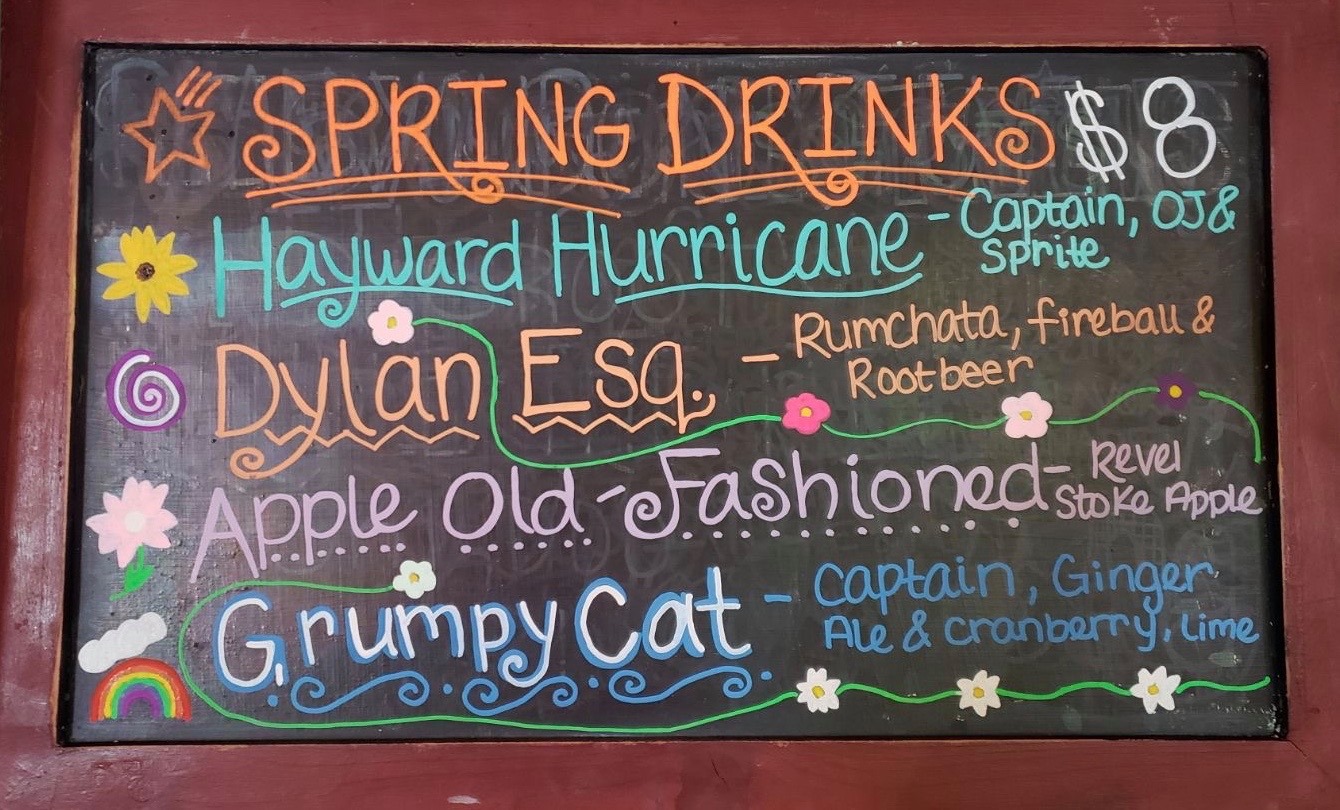 SPRING DRINKS $8
Hayward Hurricane - Captain, OJ &
Sprite
Dylan Esq. - Rumchata, fireball &
Rootbeer
Apple Old-Fashioned - Revel
Stoke Apple
Grumpy Cat - Captain, Ginger
Ale & cranberry, lime